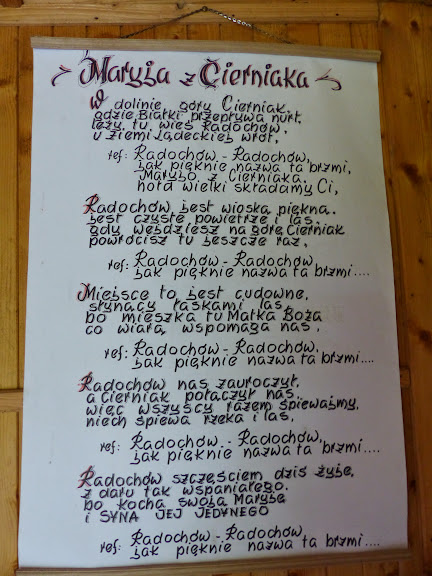 Maryja z Cierniaka
W dolinie góry Cierniak,
gdzie Białki przepływa nurt,
leży tu wieś Radochów,
u ziemi Lądeckiej wrót,
ref: Radochów - Radochów,
jak pięknie nazwa ta brzmi,
Maryjo z Cierniaka,
hołd wielki składamy Ci,
Radochów jest wioską piękną,
jest czyste powietrze i las,
gdy wejdziesz na górę Cierniak
powrócisz tu jeszcze raz,
ref: Radochów - Radochów,
jak pięknie nazwa ta brzmi....
Miejsce to jest cudowne,
słynący łaskami las
bo mieszka tu Matka Boża
co wiarą wspomaga nas,
ref: Radochów - Radochów,
jak pięknie nazwa ta brzmi....
Radochów nas zauroczył,
a Cierniak połączył nas,
więc wszyscy razem śpiewajmy,
niech śpiewa rzeka i las,
ref: Radochów - Radochów,
jak pięknie nazwa ta brzmi....
Radochów szczęściem dziś żyje,
z daru tak wspaniałego,
bo kocha swoją Maryję
i SYNA JEJ JEDYNEGO
ref: Radochów - Radochów
jak pięknie nazwa ta brzmi....